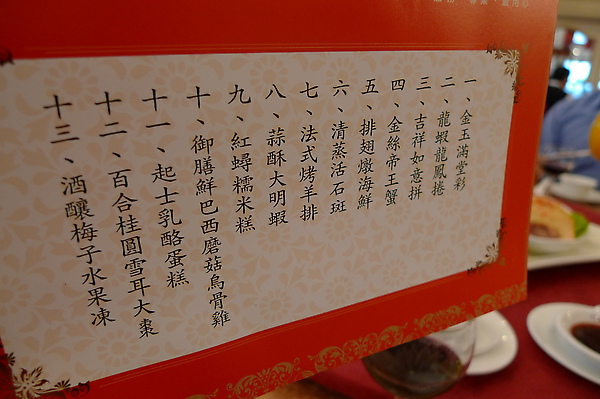 一、金玉滿堂彩
二、龍蝦龍鳳捲
三、吉祥如意拼
四、金絲帝王蟹
五、排翅燉海鮮
六、清蒸活石斑
七、法式烤羊排
八、蒜酥大明蝦
九、紅蟳糯米糕
十、御膳鮮巴西磨菇烏骨雞
十一、起士乳酪蛋糕
十二、百合桂圓雪耳大棗
十三、酒釀梅子水果凍